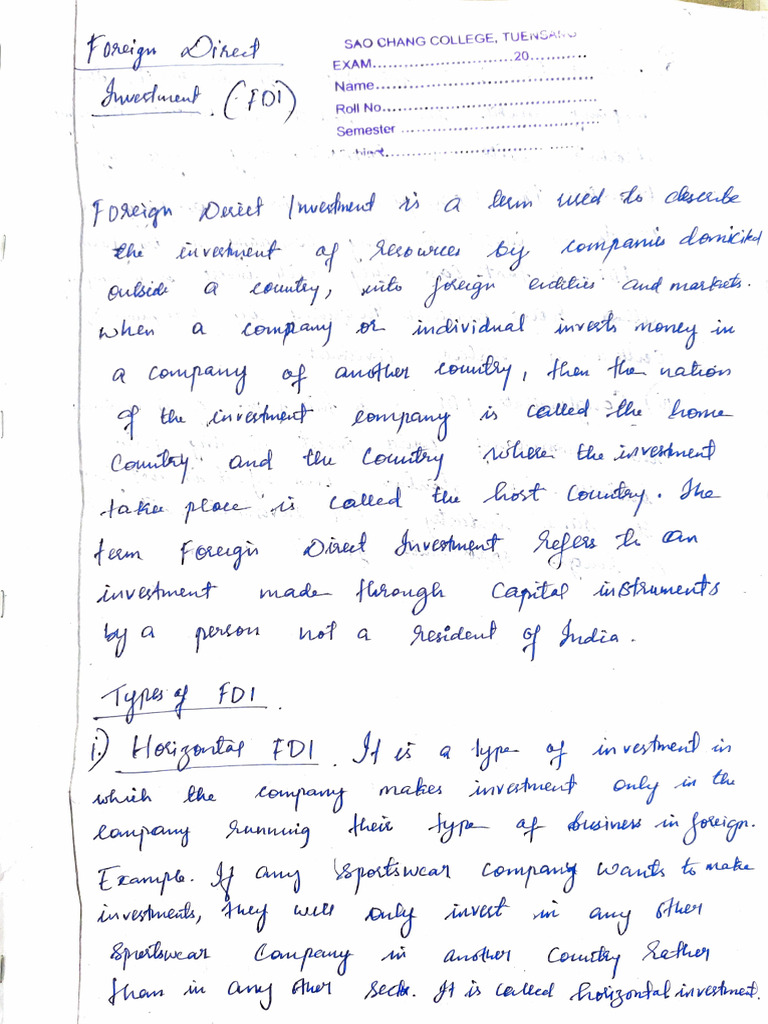 Foreign Direct
Investment. (FDI)
SAO CHANG COLLEGE, TUENSANG
EXAM..............................20...........
Name.............................................
Roll No...........................................
Semester .......................................
Foreign Direct Investment is a term used to describe
the investment of resources by companies domiciled
outside a country, into foreign entities and markets.
When a company or individual invests money in
a company of another country, then the nation
of the investment company is called the home
Country and the Country where the investment
take place is called the host Country. The
term Foreign Direct Investment refers to an
investment made through Capital instruments
by a person not a resident of India.
Types of FDI.
i) Horizontal FDI. It is a type of investment in
which the company makes investment only in the
company running their type of business in foreign.
Example. If any Sportswear company wants to make
investments, they will only invest in any other
Sportswear Company in another Country rather
than in any other sector. It is called horizontal investment.